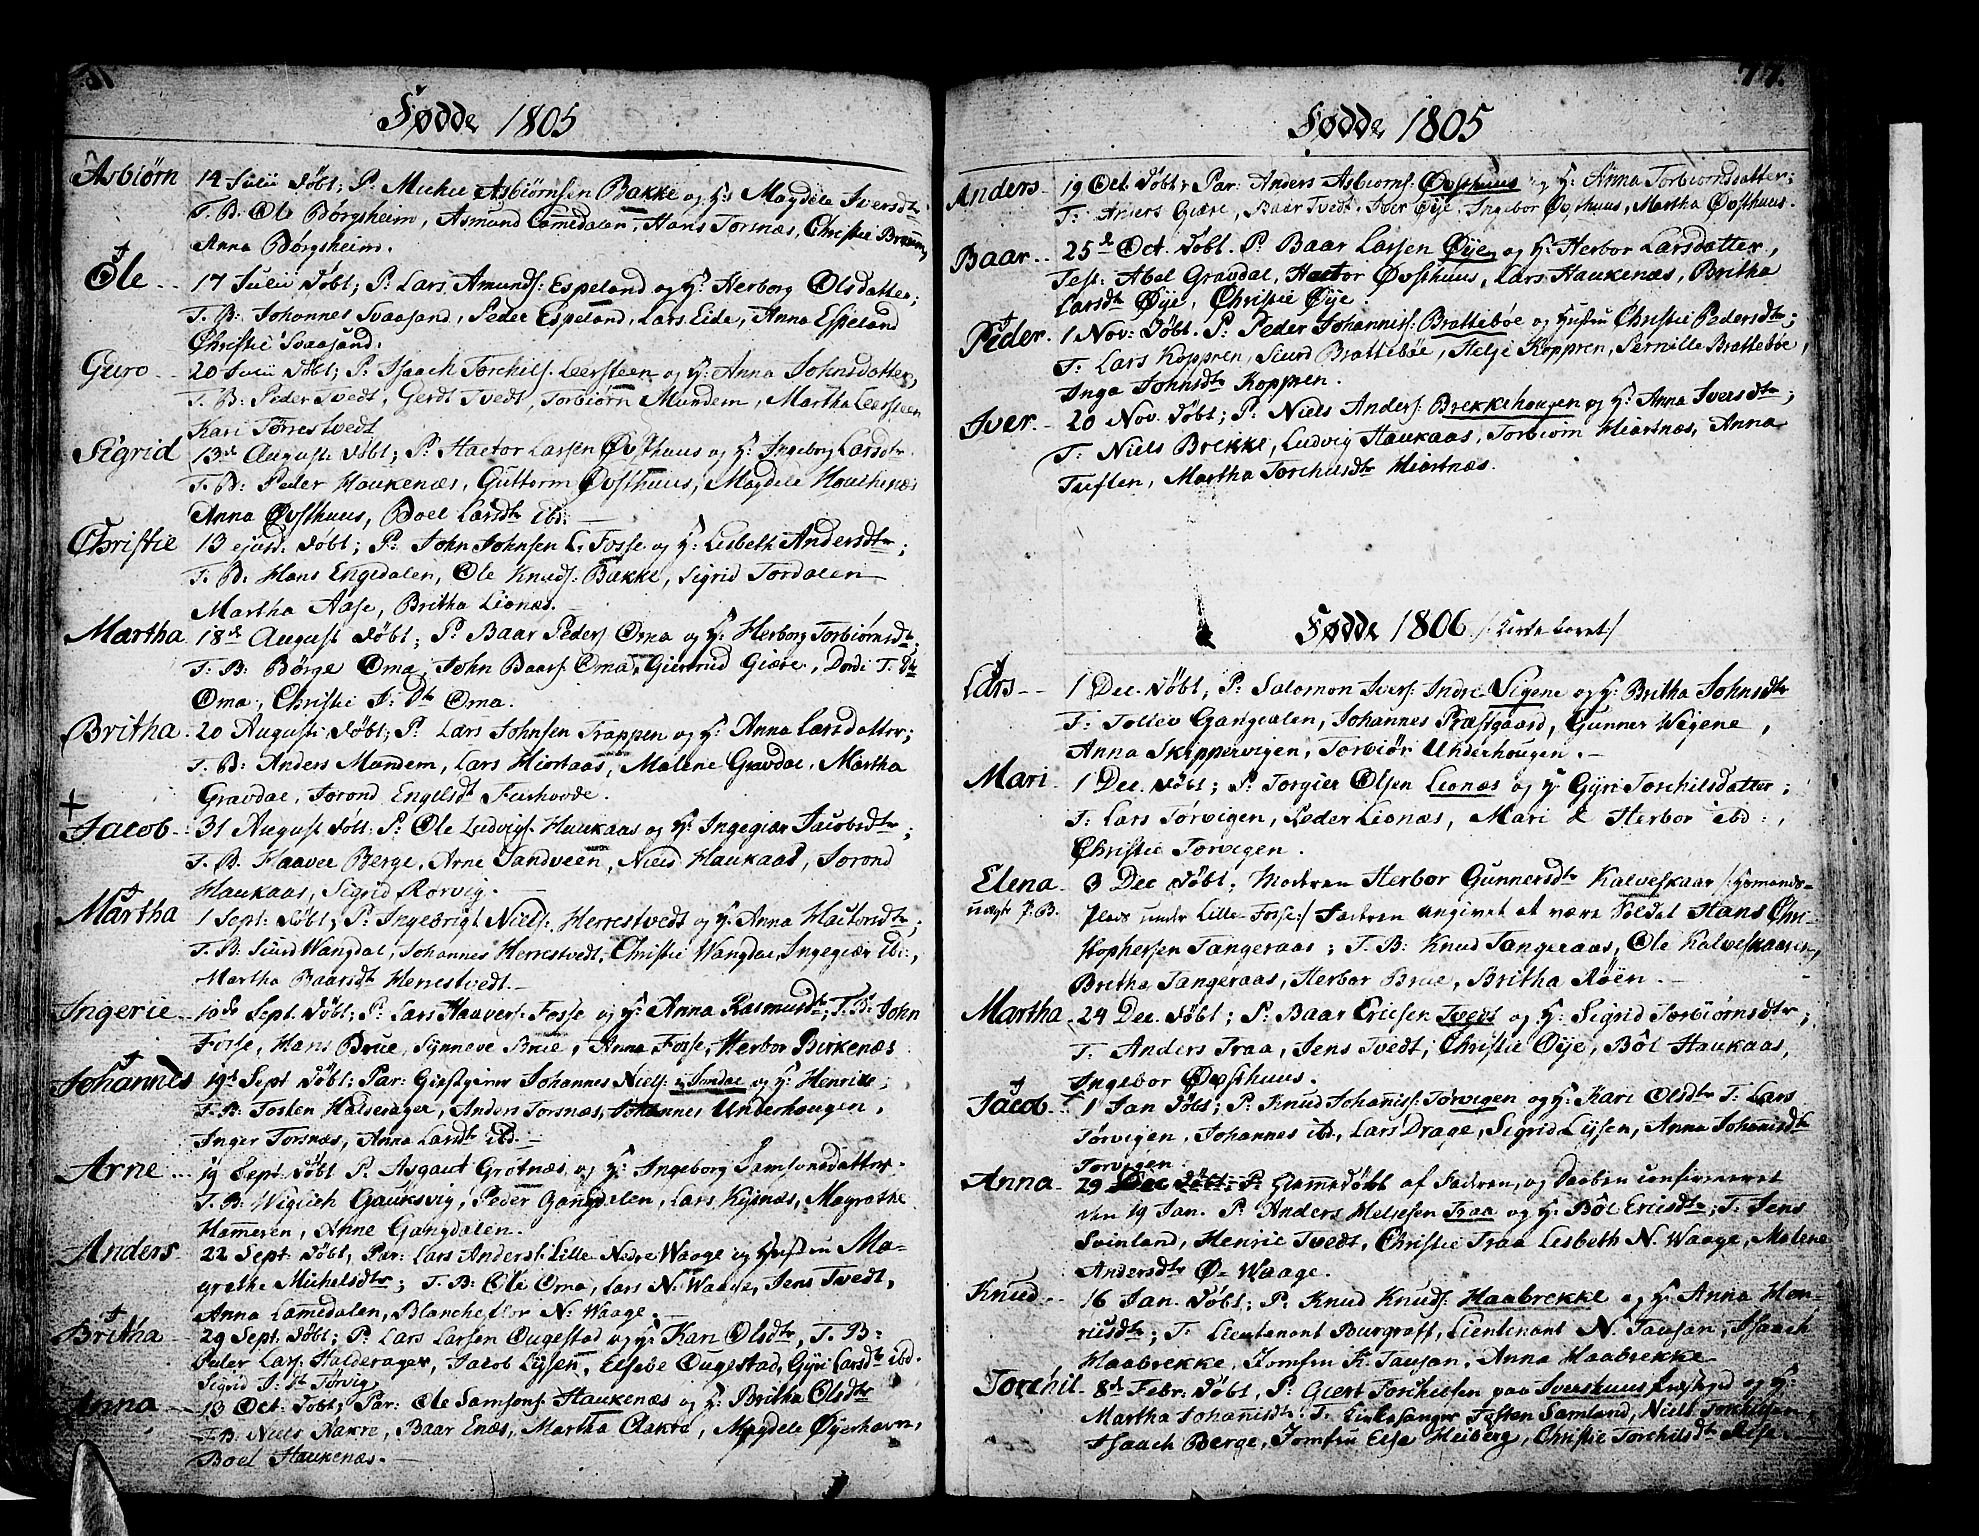 Fødde 1805
Asbiørn 14 Julii døbt; P: Michel Asbiørnsen Bakke og H: Magdele Iversdtr
T. B: Ole Børgsheim, Asmund Lamedalen, Hans Torsnæs, Christie Bravum,
Anna Børgsheim.
Ole 17 Julii døbt; P: Lars Amunds: Espeland og H: Herborg Olsdatter;
T. B: Johannes Svaasand, Peder Espeland, Lars Eide, Anna Espeland
Christie Svaasand.
Guro 20 Julii døbt; P: Isaach Torchils: Leersteen og H: Anna Johnsdatter,
T. B: Peder Tvedt, Gerdt Tvedt, Torbiørn Mundem, Martha Leersteen
Kari Torrestvedt
Sigrid 13de Augusti døbt; P: Hactor Larsen Øvsthuus og H: Ingeborg Larsdtr
T. B: Peder Haukenæs, Guttorm Øvsthuus, Magdele Haukenæs
Anna Øvsthuus, Boel Larsdtr ibd.
Christie 13 ejusd. døbt; P: John Johnsen L. Fosse og H: Lisbeth Andersdtr;
T. B: Hans Engedalen, Ole Knuds: Bakke, Sigrid Tordalen
Martha Aase, Britha Lionæs.
Martha 18de August døbt; P: Baar Peders Oma og H: Herborg Torbiørnsdt,
T. B: Børge Oma, John Baars: Oma, Giertrud Giære, Dordi T. Dtr
Oma, Christie J: Dtr Oma.
Britha 20 Augusti døbt; P: Lars Johnsen Trappen og H: Anna Larsdatter;
T. B: Anders Mundem, Lars Hiortaas, Malene Gravdal, Martha
Gravdal, Torond Engelsdt
Jacob 31 August døbt: P: Ole Ludvigs: Haukaas og H: Ingegiær Jacobsdtr;
T. B. Haaver Berge, Arne Sandveen, Niels Haukaas, Torond
Haukaas, Sigrid Rørvig.
Martha 1 Sept: døbt; P: Ingebrigt Niels: Herrestvedt og H: Anna Hactorsdtr;
T. B: Siurd Wangdal, Johannes Herrestvedt, Christie Wangdal, Ingegiær ibd:,
Martha Baarsdt Herrestvedt.
Ingerie 10de Sept. døbt; P: Lars Haavers: Fosse og H: Anna Rasmusdtr; T. B: John
Fosse, Hans Brue, Synneve Brue, Anna Fosse, Herbor Birkenæs
Johannes 19de Sept døbt; Par: Giestgiver Johannes Niels: i Sundal og H: Henrikke,
T. B: Tosten Halderager, Anders Torsnæs, Johannes Underhougen,
Inger Torsnæs, Anna Larsdtr ibd.
Arne 19 Sept: døbt P: Asgaut Grotnæs og H: Ingeborg Samsonsdatter
T. B: Wiglich Gauksvig, Peder Gangdalen, Lars Kysnæs, Magrethe
Hammeren, Ahne Gangdalen.
Anders 22 Sept. døbt; Par: Lars Anders: Lille Nedre Waage og Hustru Ma-
grethe Michelsdtr; T. B: Ole Oma, Lars N: Waage, Jens Tvedt,
Anna Lamedalen, Blancheflor N: Waage.
Britha 29 Sept: døbt; P: Lars Larsen Ougestad og H: Kari Olsdtr, T. B:
Peder Lars: Halderager, Jacob Lyssen, Elsebe Ougestad, Gyri Larsdtr ibd.
Sigrid J: dt Tørvig
Anna 13 Oct: døbt; Par: Ole Samsons: Haukenæs og H: Britha Olsdtr
T. B: Niels Aakre, Baar Enæs, Martha Aakre, Magdele Øyerhavn,
Boel Haukenæs.
77.
Fødde 1805
Anders 19 Oct. døbt; Par: Anders Asbiørns: Øvsthuus og H: Anna Torbiørnsdatter;
T: Anders Giære, Baar Tvedt, Iver Øye, Ingebor Øvsthuus, Martha Øvsthuus.
Baar 25de Oct. døbt. P: Baar Larsen Øye og H: Herbor Larsdatter,
Test: Abel Gravdal, Hactor Øvsthuus, Lars Haukenæs, Britha
Larsdtr Øye, Christie Øye.
Peder 1 Nov: døbt. P: Peder Johannis: Brattebøe og Hustru Christie Pedersdtr;
T: Lars Koppren, Siurd Brattebøe, Helje Koppren, Pernille Brattebøe,
Inga Johnsdtr Koppren.
Iver 20 Nov. døbt; P: Niels Anders: Brekkehougen og H: Anna Iversdtr;
T: Niels Brekke, Ludvig Haukaas, Torbiørn Hiortnæs, Anna
Tuften, Martha Torchilsdtr Hiortnæs.
Fødde 1806 /: Kirke-Aaret:/
Lars 1 Dec. døbt; P: Salomon Ivers: Indre Vigene og H: Britha Johnsdtr
T: Tollev Gangdalen, Johannes Præstgaard, Gunner Wigene,
Anna Skippervigen, Torbiør Underhougen.
Mari 1 Dec. døbt; P: Torgier Olsen Lionæs og H: Gyri Torchilsdatter;
T: Lars Tørvigen, Peder Lionæs, Mari & Herbor ibd:,
Christie Tørvigen.
Elena 3 Dec døbt; Moderen Herbor Gunnersdtr Kalveskaar /: Husmands-
uægte P. B. Plads under Lille Fosse:/ Faderen angivet at være Soldat Hans Chri-
stophersen Tangeraas; T. B: Knud Tangeraas, Ole Kalveskaaren,
Britha Tangeraas, Herbor Brue, Britha Røen.
Martha 24 Dec. døbt; P: Baar Ericsen Tvedt og H: Sigrid Torbiørnsdtr;
T: Anders Traa, Jens Tvedt, Christie Øye, Bôl Haukaas,
Ingebor Øvsthuus.
Jacob 1 Jan døbt; P: Knud Johannis: Tørvigen og H: Kari Olsdtr T: Lars
Tørvigen, Johannes ibd, Lars Drage, Sigrid Lysen, Anna Johanisdtr
Tørvigen.
Anna 29 Dec døbt; P: Hiemmedøbt af Faderen, og Daaben confirmeret
den 19 Jan. P: Anders Helgesen Traa og H: Bôl Ericsdtr; T: Jens
Svinland, Henric Tvedt, Christie Traa Lisbeth N. Waage, Malene
Andersdtr Ø- Waage.
Knud 16 Jan. døbt; P: Knud Knuds: Haabrekke og H: Anna Hen-
ricsdtr; T: Lieutenant Burgraff, Lieutenant N. Tausan, Isaach
Haabrekke, Jomfru K: Tausan, Anna Haabrekke
Torchil 8de Febr: døbt, P: Giert Torchilsen paa Ivershuus Præstegd og H:
Martha Johanisdtr. T: Kirkesanger Tosten Samland, Niels Torchilsen
Isaach Berge, Jomfru Else Heiberg, Christie Torchilsdtr